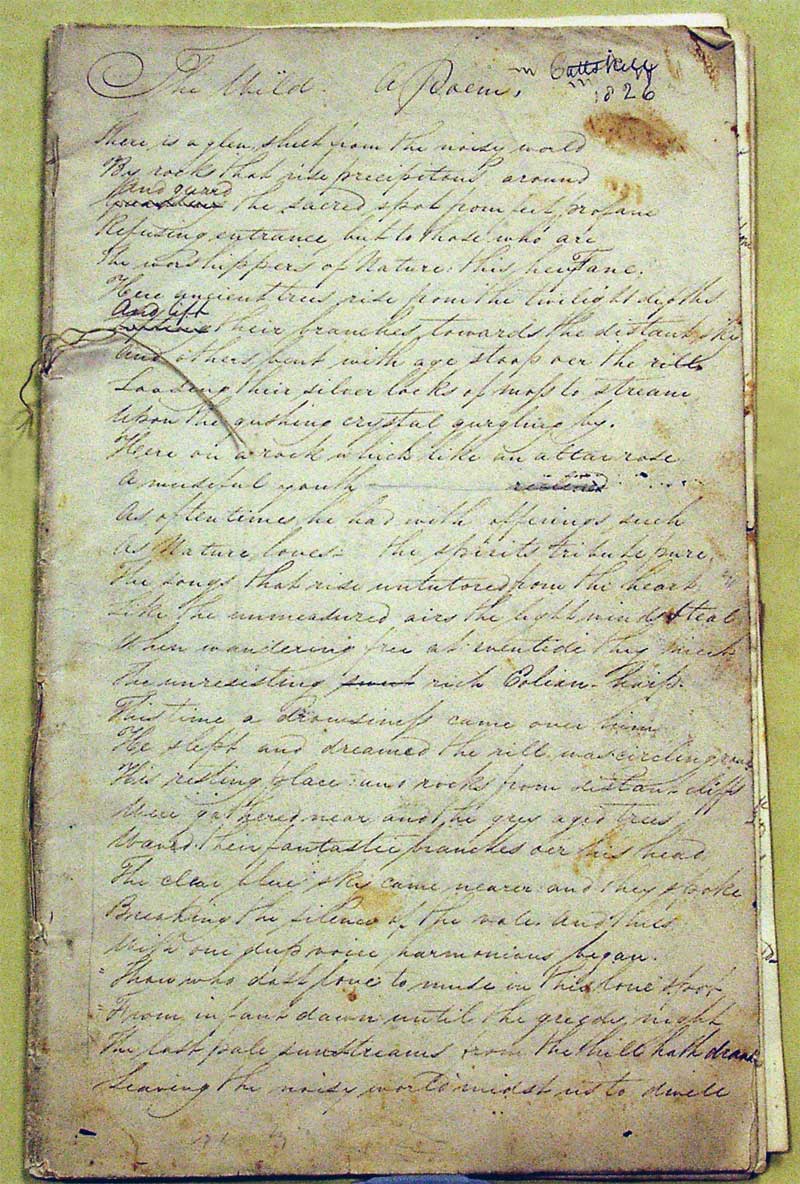 The Wild. A Poem, Cattskill
1826
There is a glen shut from the noisy world
By rocks that rise precipitous around
And guard
the sacred spot from feet profane
Refusing entrance but to those who are
The worshippers of Nature: this her Fane.
Here ancient trees rise from the twilight depths
And lift
their branches towards the distant sky
And others bent with age stoop oer the rill
Loading their silver locks of moss to stream
Upon the gushing crystal gurgling by.
Here on a rock which like an altar rose
A museful youth reclined
As often times he had with offerings such
As Nature loves- the spirits tribute pure,
The songs that rise untutored from the heart
Like the unmeasured airs the light winds steal
When wandering free at eventide they meet
The unresisting sweet rich Eolian-Harp.
This time a drowsiness came over him
He slept and dreamed the rill was circling round
His resting place: and rocks from distant cliffs
Were gathered near and the grey aged trees
Waved their fantastic branches oer his head
The clear blue sky came nearer and they spoke
Breaking the silence of the vale. And thus
With one deep voice harmonious began.
"Thou who dost love to muse in this lone spot
"From infant dawn until the greedy night
The last pale sunstreams from the hill hath drank
Leaving the noisy world midst us to dwell